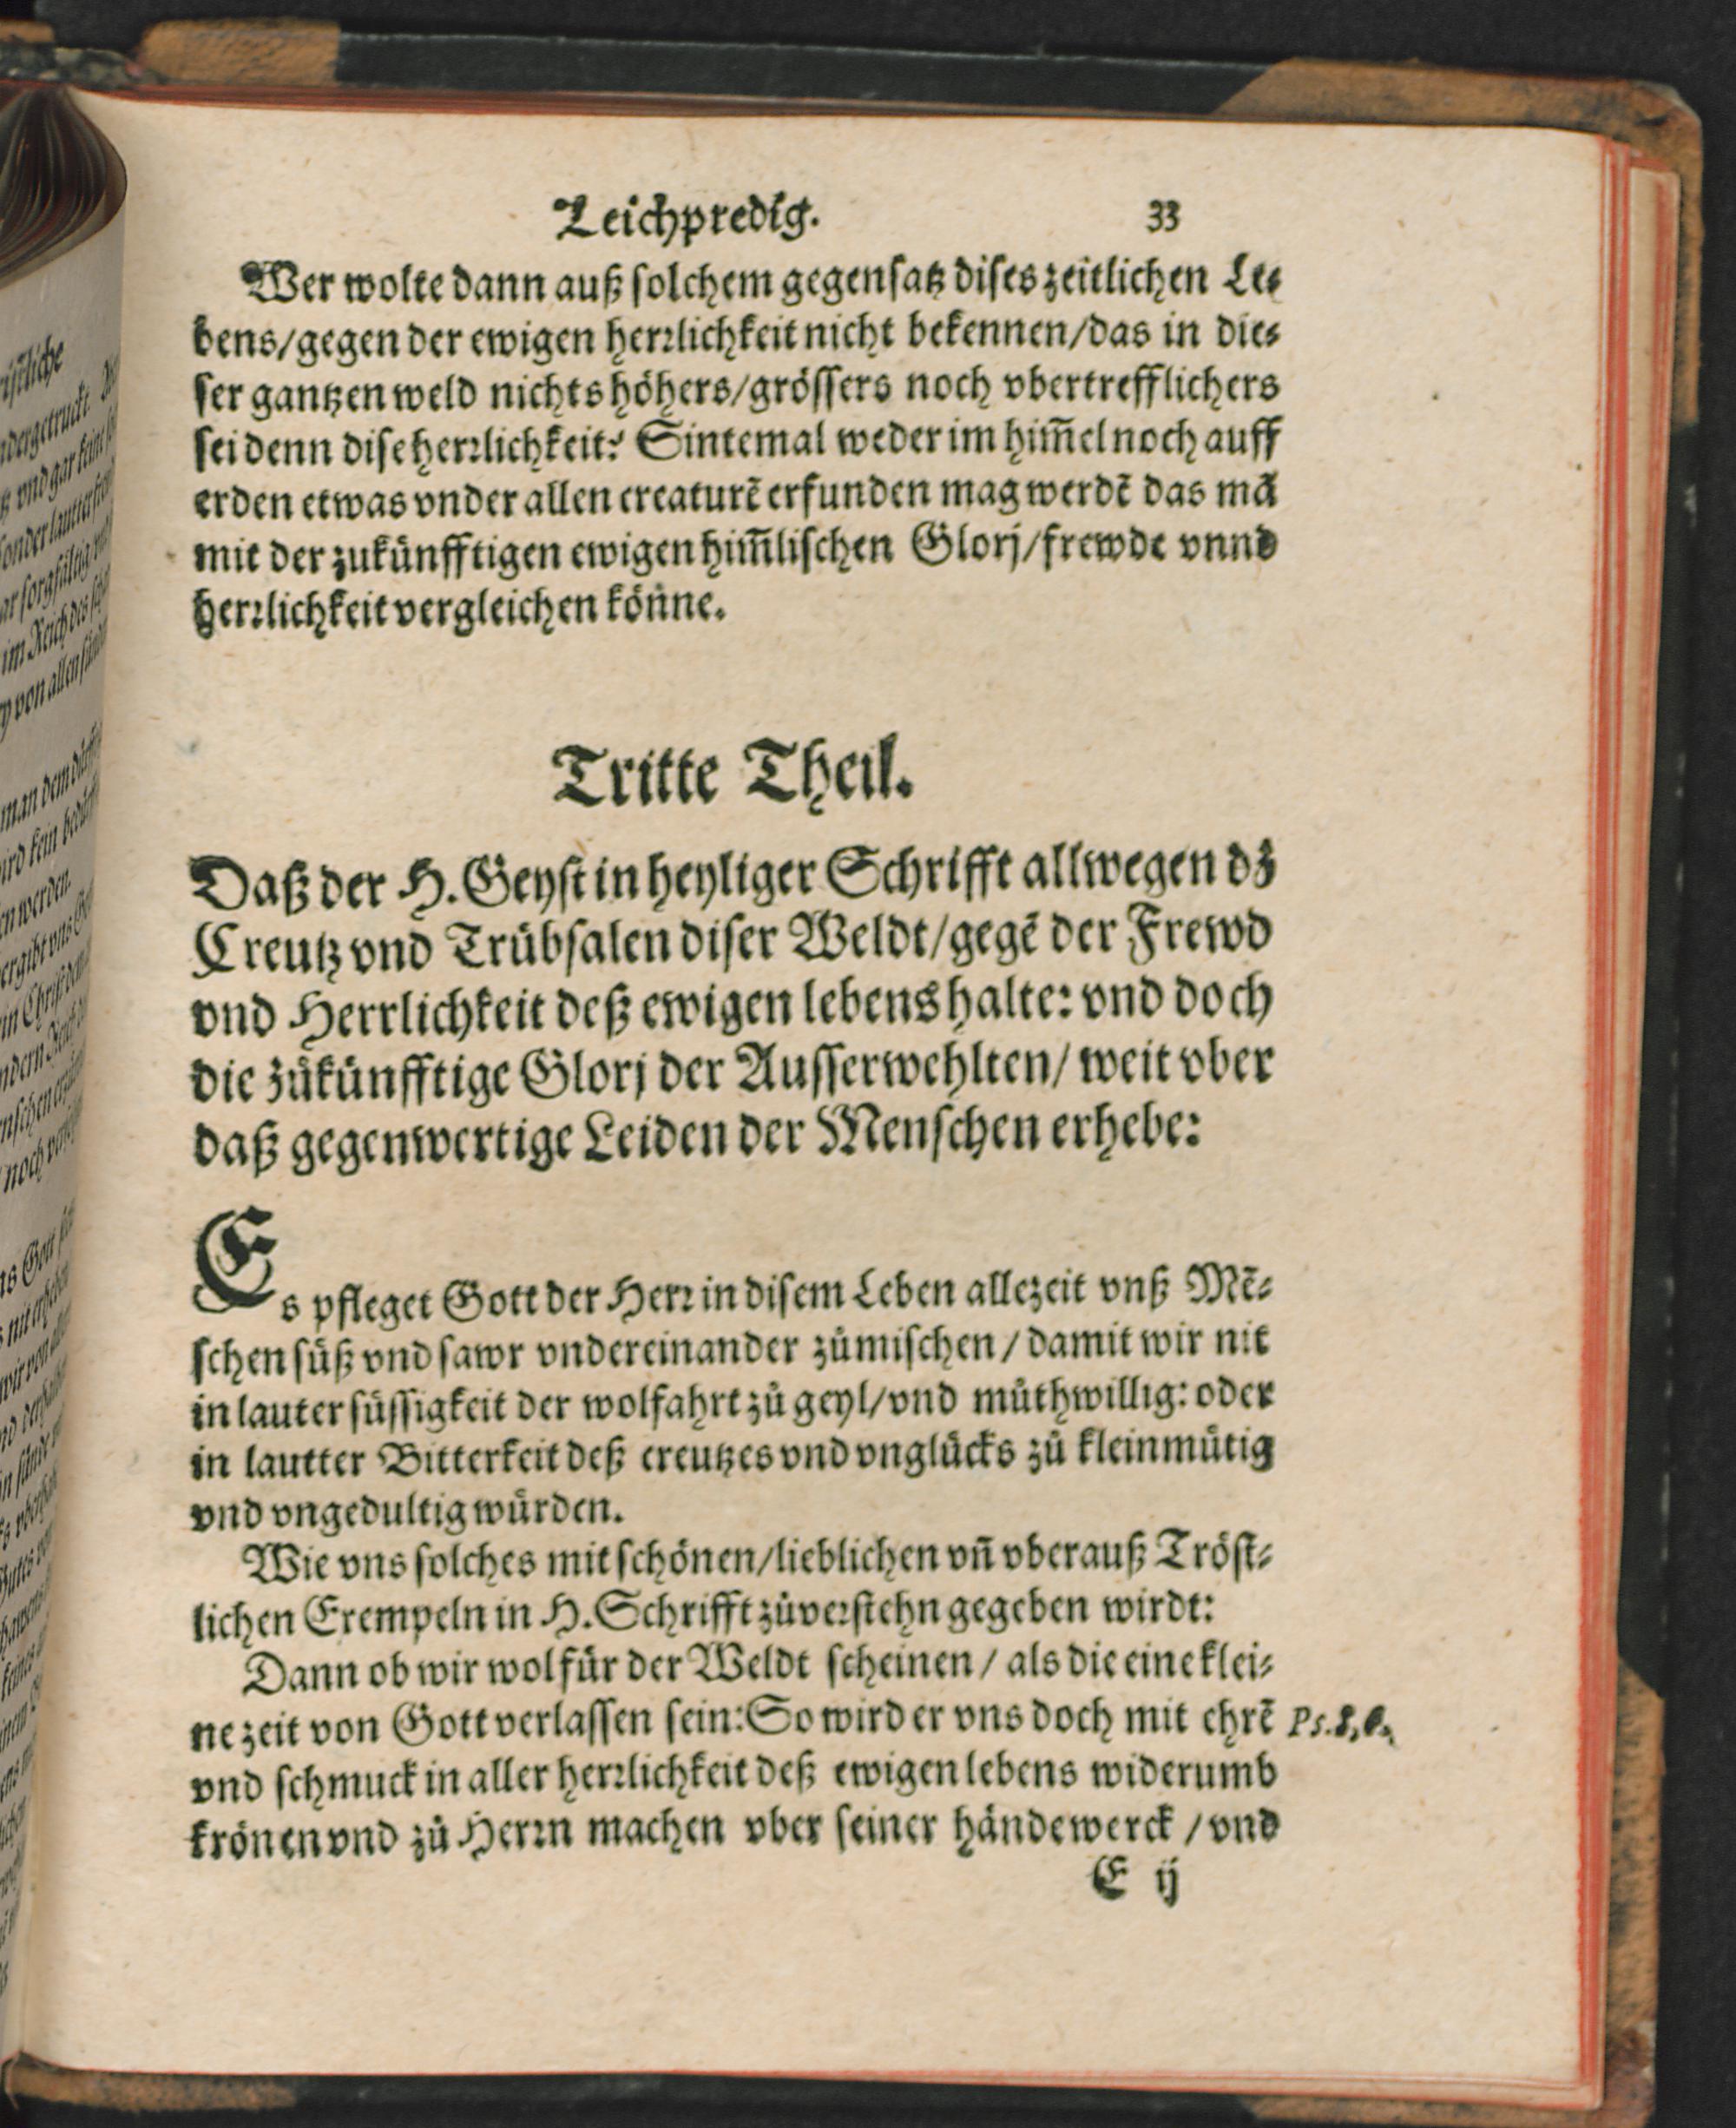 Leichpredig. 33
Wer wolte dann auß solchem gegensatz dises zeitlichen Le⸗
bens/gegen der ewigen herrlichkeit nicht bekennen/das in die⸗
ser gantzen weld nichts höhers/grössers noch vbertrefflichers
sei denn dise herrlichkeit? Sintemal weder im him̃el noch auff
erden etwas vnder allen creaturẽ erfunden mag werdẽ das mã
mit der zukünfftigen ewigen him̃lischen Glorj/frewde vnnd
herrlichkeit vergleichen könne.
Tritte Theil.
Daß der H. Geyst in heyliger Schrifft allwegen dz
Creutz vnd Trübsalen diser Weldt/gegẽ der Frewd
vnd Herrlichkeit deß ewigen lebens halte: vnd doch
die zůkünfftige Glorj der Ausserwehlten/ weit vber
daß gegenwertige Leiden der Menschen erhebe:
Es pfleget Gott der Herr in disem Leben allezeit vnß Mẽ⸗
schen süß vnd sawr vndereinander zůmischen / damit wir nit
in lauter süssigkeit der wolfahrt zů geyl/vnd můthwillig: oder
in lautter Bitterkeit deß creutzes vnd vnglücks zů kleinmütig
vnd vngedultig würden.
Wie vns solches mit schönen/lieblichen vñ vberauß Tröst⸗
lichen Exempeln in H. Schrifft zůverstehn gegeben wirdt:
Dann ob wir wol für der Weldt scheinen / als die eine klei⸗
ne zeit von Gott verlassen sein: So wird er vns doch mit ehrẽ Ps. 8,6.
vnd schmuck in aller herrlichkeit deß ewigen lebens widerumb
krönen vnd zů Herrn machen vber seiner händewerck / vnd
E ij